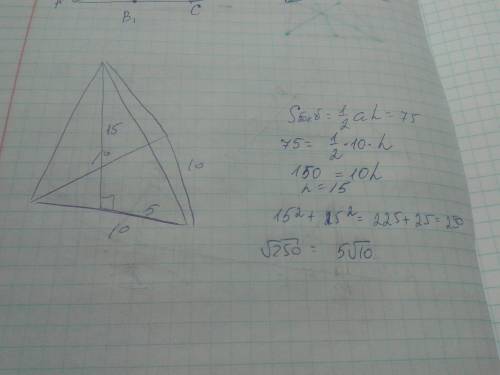 B₁ C
15
10
5
10
Sбок б = 1/2 ah = 75
75 = 1/2 · 10 · h
150 = 10h
h = 15
15² + 25² = 225 + 25 = 250
√250 = 5√10